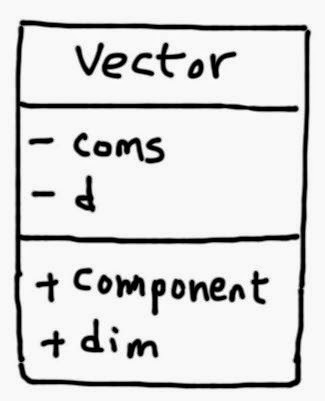 Vector
- coms
- d
+ component
+ dim